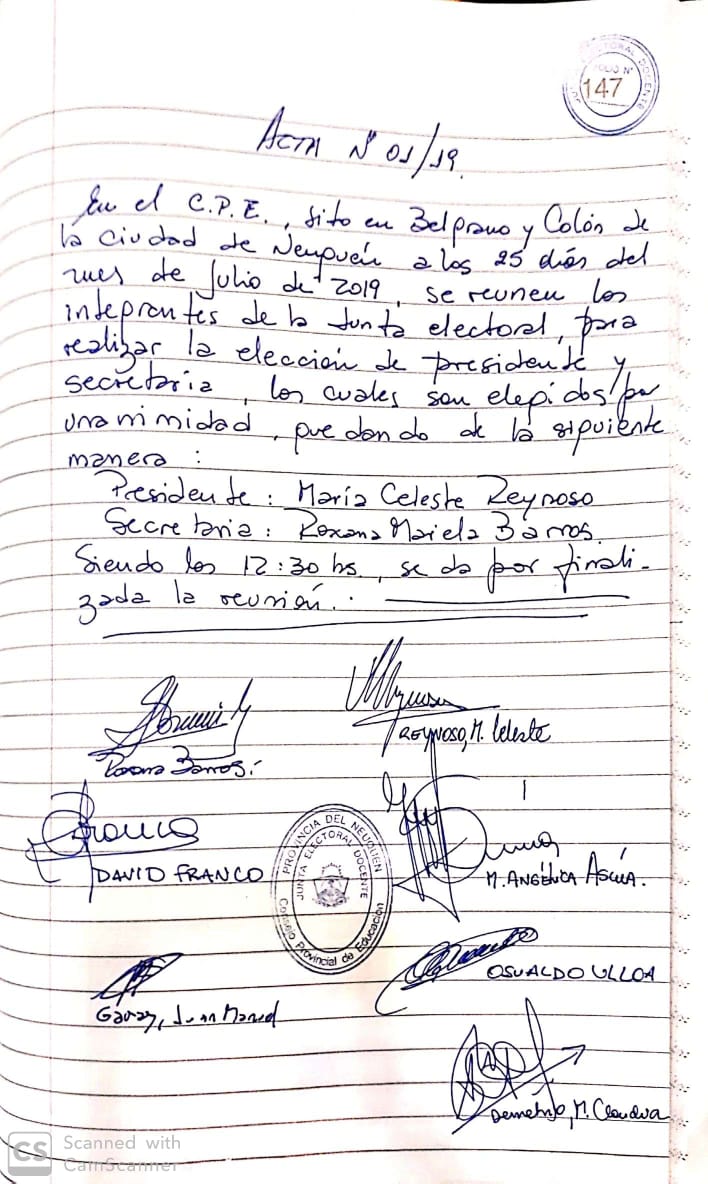 JUNTA ELECTORAL DOCENTE
FOLIO N°
147
ACTA N° 01/19.
En el C.P.E., sito en Belgrano y Colón de
la ciudad de Neuquén a los 25 días del
mes de Julio de 2019, se reunen los
integrantes de la Junta electoral, para
realizar la elección de presidente y
secretaria, los cuales son elegidos por
unanimidad, quedando de la siguiente
manera:
Presidente: María Celeste Reynoso
Secretaria: Roxana Mariela Barros.
Siendo las 12:30 hs., se da por finali-
zada la reunión.
REYNOSO, M. Celeste
Roxana Barros
DAVID FRANCO
PROVINCIA DEL NEUQUEN
JUNTA ELECTORAL DOCENTE
Consejo Provincial de Educación
M. ANGÉLICA
OSVALDO ULLOA
Garay, Juan Manuel
Demetrio, M. Claudia
CS Scanned with
CamScanner